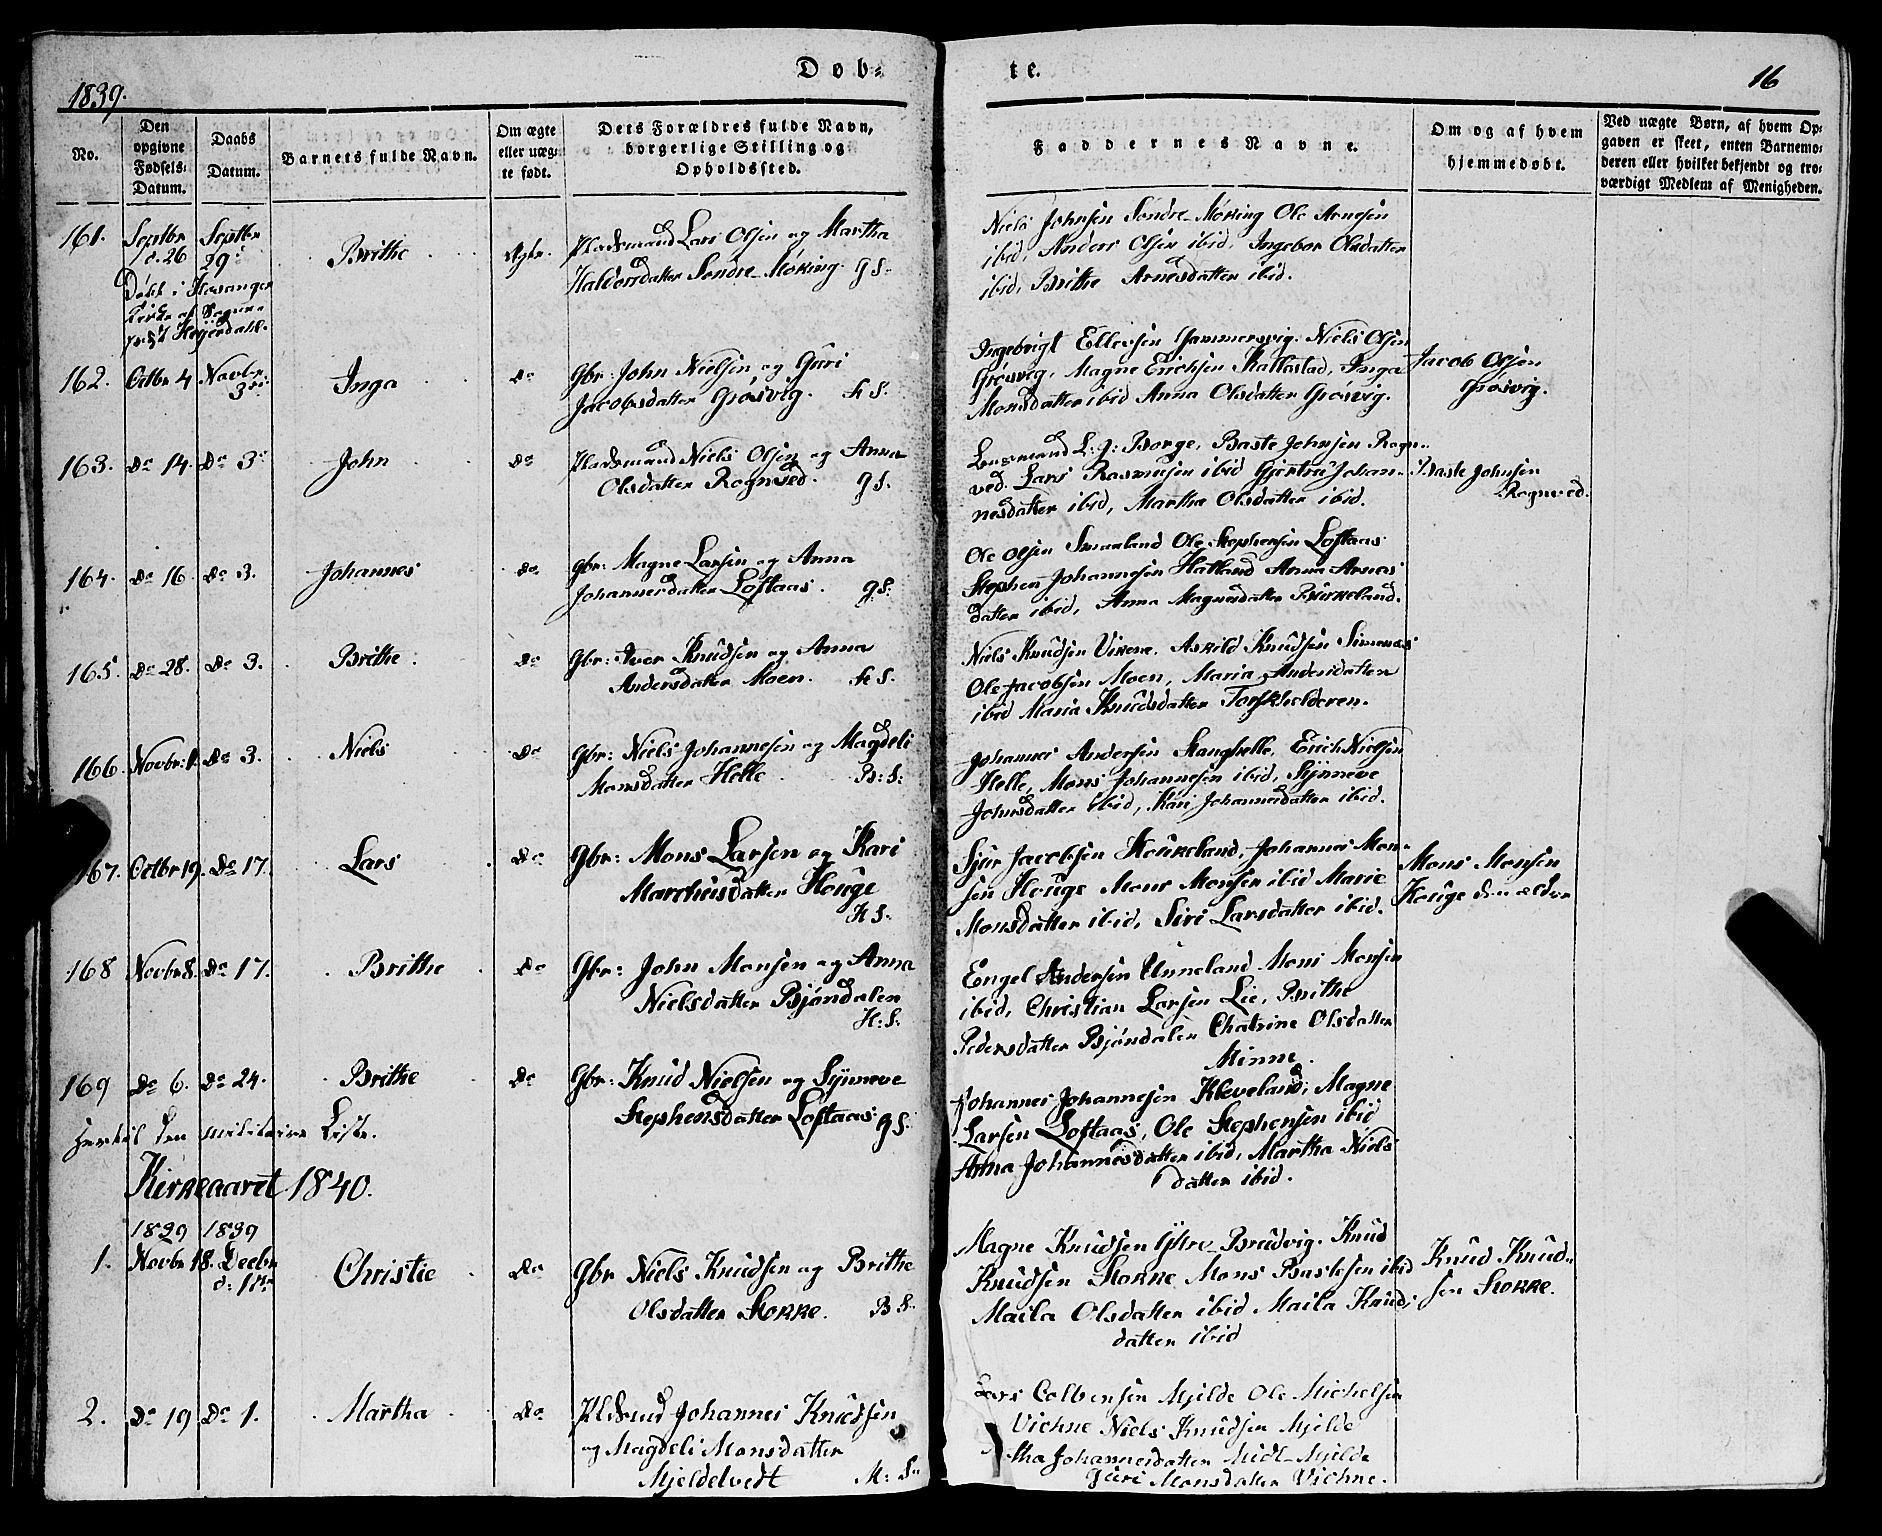 Døb-
te.
1839.
16
No.
Den opgivne Fødsels-Datum.
Daabs Datum.
Barnets fulde Navn.
Om ægte eller uæg-te født.
Dets Forældres fulde Navn, borgerlige Stilling og Opholdssted.
Faddernes Navne.
Om og af hvem hjemmedøbt.
Ved uægte Børn, af hvem Op-gaven er skeet, enten Barnemo-deren eller hvilket bekjendt og tro-værdigt Medlem af Menigheden.
161. Septbr d. 26 Septbr 29 Brithe Ægte.
Pladsmand Lars Olsen og Martha
Haldorsdatter Søndre Møking. G S.
Niels Johnsen Søndre Møking Ole Arnesen
ibid, Anders Olsen ibid, Ingebor Olsdatter
ibid, Brithe Arnesdatter ibid.
Døbt i Hosanger
Kirke af
162. Octbr 4 Novbr: 3die Inga Do
Gbr: John Nielsen og Guri
Jacobsdatter Grøsvig. H S.
Ingebrigt Ellevsen Hammersvig. Niels Olsen
Grøsvig, Magne Erichsen Kallestad, Inga
Monsdatter ibid Anna Olsdatter Grøsvig.
Jacob Olsen
Grøsvig.
163. Do 14. Do 3 John Do
Pladsmand Niels Olsen og Anna
Olsdatter Rognved. G S.
Lensmand L: J: Borge, Baste Johnsen Rogn-
ved. Lars Rasmusen ibid Gjertru Johan-
nesdatter ibid, Martha Olsdatter ibid.
Baste Johnsen
Rognved.
164. Do 16. Do 3. Johannes Do
Gbr: Magne Larsen og Anna
Johannesdatter Loftaas. G S:
Ole Olsen Smaaland Ole Stephensen Loftaas
Stephen Johannesen Hatland Anna Arnes
datter ibid, Anna Magnesdatter Birkeland.
165. Do 28. Do 3. Brithe. Do
Gbr: Iver Knudsen og Anna
Andersdatter Moen. H S.
Niels Knudsen Vikene. Askild Knudsen Simenæs
Ole Jacobsen Moen, Maria Andersdatter
ibid Maria Knudsdatter
166. Novbr: 1. Do 3. Niels Do
Gbr: Niels Johannesen og Magdeli
Monsdatter Helle B: S:
Johannes Andersen Stanghelle, Erich Nielsen
Helle, Mons Johannesen ibid, Synneve
Johnsdatter ibid, Kari Johannesdatter ibid.
167. Octbr 19. Do 17. Lars Do
Gbr: Mons Larsen og Kari
Marthusdatter Houge
H S.
Sjur Jacobsen Houkeland, Johannes Mon-
sen Houge Mons Monsen ibid Marie
Monsdatter ibid, Siri Larsdatter ibid.
Mons Monsen
Houge den ældre
168 Novbr 8. Do 17. Brithe Do
Gbr: John Monsen og Anna
Nielsdatter Bjøndalen
H: S:
Engel Andersen Unneland Mons Monsen
ibid, Christian Larsen Lie, Brithe
Pedersdatter Bjøndalen Chatrine Olsdatter
Minne.
169 Do 6. Do 24. Brithe Do
Gbr: Knud Nielsen og Synneve
Stephensdatter Loftaas: G S.
Johannes Johannesen Kleveland, Magne
Larsen Loftaas, Ole Stephensen ibid
Anna Johannesdatter ibid, Martha Niels
datter ibid.
Hertil den militaire Liste.
Kirkeaaret 1840.
1839 1839
1. Novbr 18. Decbr d: 1ste Christie Do
Gbr Niels Knudsen og Brithe
Olsdatter Storke. B S.
Magne Knudsen Yttre Brudvig. Knud
Knudsen Storke Mons Bastesen ibid
Maila Olsdatter ibid Maila Knuds
datter ibid
Knud Knud-
sen Storke.
2. Do 19 Do 1. Martha Do
Pldsmd Johannes Knudsen
og Magdeli Monsdatter
Mjeldetvedt M: S:
Lars Colbensen Mjelde Ole Michelsen
Vichne Niels Knudsen Mjelde
tha Johannesdatter Midt Mjelde
Guri Monsdatter Vichne.